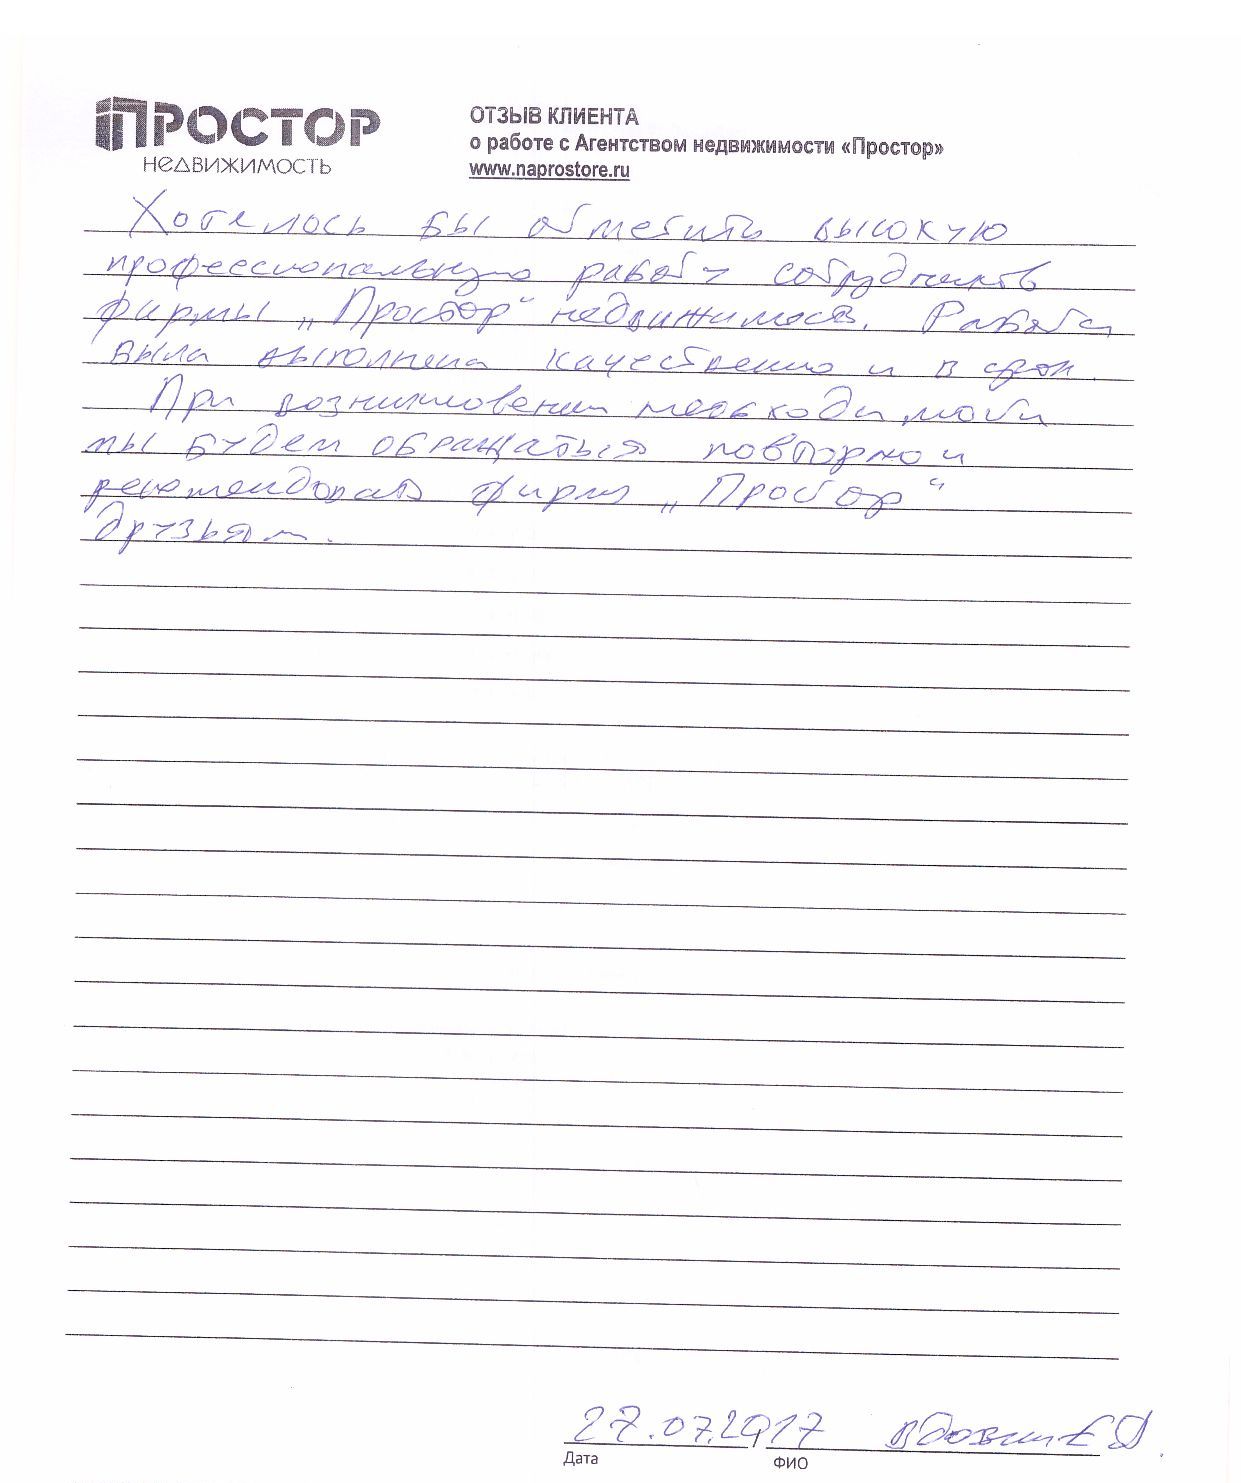 ПРОСТОР
НЕДВИЖИМОСТЬ
ОТЗЫВ КЛИЕНТА
о работе с Агентством недвижимости «Простор»
www.naprostore.ru
Хотелось бы отметить высокую
профессиональную работу сотрудников
фирмы „Простор“ недвижимость. Работа
была выполнена качественно и в срок.
При возникновении необходимости
мы будем обращаться повторно и
рекомендовать фирму „Простор“
друзьям.
27.07.2017 Вдовин Е Д.
Дата
ФИО